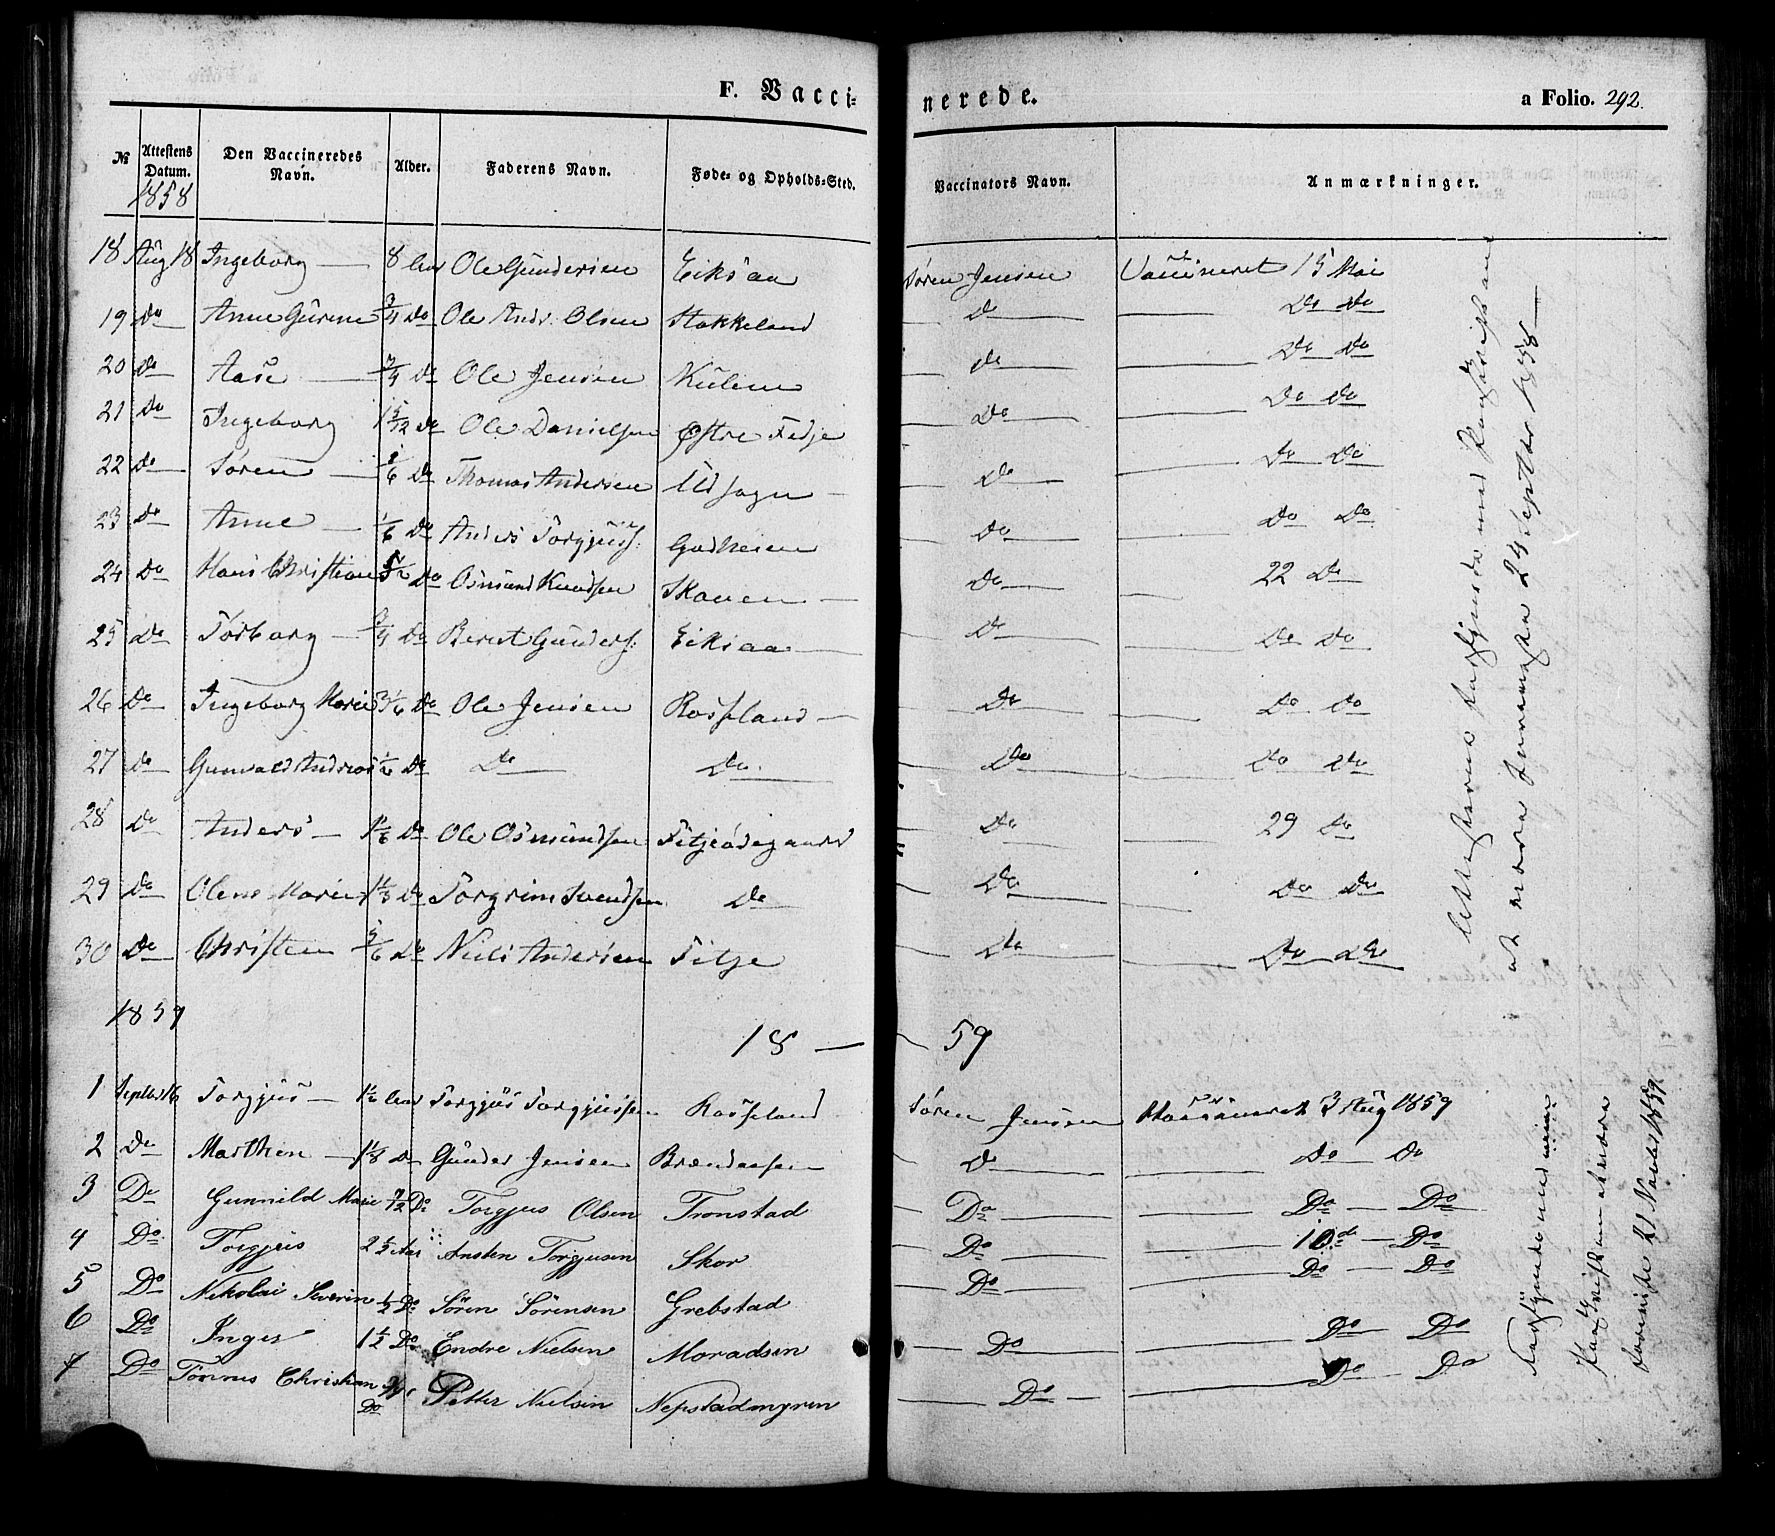 F. Vacci-
nerede.
a Folio. 292.
№ Attestens Datum. Den Vaccineredes Navn. Alder. Faderens Navn. Føde- og Opholds-Sted. Vaccinators Navn. Anmærkninger.
1858
18 Aug 18 Ingeborg 8 Aar Ole Gundersen Eiksaa Søren Jensen Vaccineret 15 Mai
19 Do Anne Gurine 3/4 Do Ole Andr. Olsen Stokkeland Do Do Do
20 Do Aase 3/4 Do Ole Jensen Kulien Do Do Do
21 Do Ingeborg 1 5/12 Do Ole Danielsen Østre Fidje Do Do Do
22 Do Søren 1/6 Do Thomas Andersen Do Do Do
23 Do Anne 1/6 Do Anders Torgjuss. Godheien Do Do Do
24 Do Hans Christian Do Osmund Knudsen Skouen Do 22 Do
25 Do Torborg 3/4 Do Berent Gunders. Eiksaa Do Do Do
26 Do Ingeborg Marie 3 1/6 Do Ole Jensen Rosseland Do Do Do
27 Do Gunvald Andreas 1/6 Do Do Do Do Do Do
28 Do Anders 1 1/6 Do Ole Osmundsen Fitjeødegaard Do 29 Do
29 Do Olene Marie 1 1/3 Do Torgrim Svendsen Do Do Do Do
30 Do Christen 5/6 Do Niels Andersen Fitje Do Do Do
Attesterne med
at være 24 Septbr 1858
1859
18 — 59
1 Septbr 16 Torgjus 1 1/6 Aar Torgjus Torgjussen Rosseland Søren Jensen Vaccineret 3 Aug 1859
2 Do Marthen 1 1/8 Do Gunder Jensen Brændaasen Do Do Do
3 Do Gunnild Marie 7/12 Do Torgjus Olsen Tronstad Do Do Do
4 Do Torgjus 2 1/2 Aar Ansten Torgjusen Skor Do 10de Do
5 Do Nikolai Severin 1/2 Do Søren Sørensen Grebstad Do Do Do
6 Do Inger 1 1/2 Do Endre Nielsen Moradsen Do Do Do
7 Do Tønnes Christian 3/4 Do Petter Nielsen Nepstadmyren Do Do Do